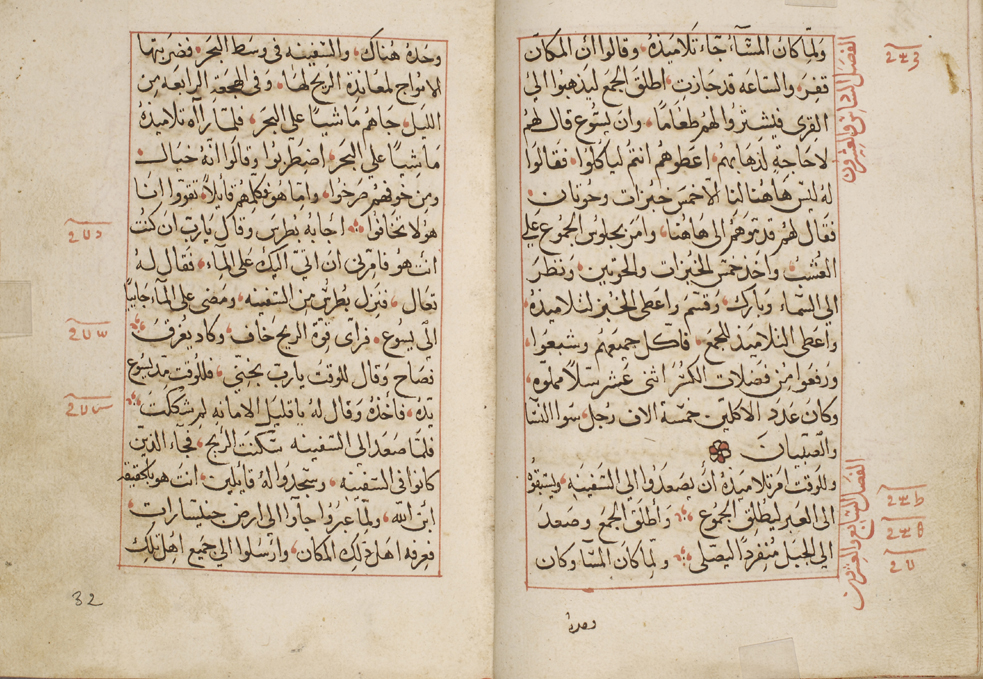 ولما كان المسآء جاء تلاميذه وقالوا ان المكان
قفر والساعه قد جازت اطلق الجمع ليذهبوا الي
القرى فيشتروا لهم طعاما وان يسوع قال لهم
لا حاجة لذهابهم اعطوهم انتم لياكلوا فقالوا
له ليس هاهنا لنا الا خمس خبزات وحوتان
فقال لهم قدموهم الى هاهنا وامر بجلوس الجموع على
العشب واخذ خمس الخبزات والحوتين ونظر
الى السماء وبارك وقسم واعطى الخبز لتلاميذه
واعطى التلاميذ للجمع فاكل جميعهم وشبعوا
ورفعوا من فضلات الكسر اثنى عشر سلا مملوه
وكان عدد الاكلين خمسة الاف رجل سوا النسا
والصبيان
وللوقت امر تلاميذه أن يصعدوا الى السفينه ويسبقوه
الى العبر ليطلق الجموع واطلق الجمع وصعد
الي الجبل منفردا ليصلى ولما كان المسآ وكان
وحده
الفصل السادس والعشرون
الفصل السابع والعشرون
وحده هناك والسفينه في وسط البحر فضربتها
الامواج لمعاندة الريح لها وفى الهجعة الرابعه من
الليل جاهم ماشيا علي البحر فلما رآاه تلاميذه
ماشيا علي البحر اضطربوا وقالوا انه خيال
ومن خوفهم صرخوا واما هو فكلمهم قايلا تقووا انا
هو لا تخافوا اجابه بطرس وقال يارب ان كنت
انت هو فامرنى ان اتى اليك على المآء فقال له
تعال فنزل بطرس من السفينه ومضى علي المآ جاييا
الى يسوع فراى قوة الريح خاف وكاد يغرق
فصاح وقال للوقت يارب نجنى فللوقت مد يسوع
يده فاخذه وقال له ياقليل الامانه لم شككت
فلما صعد الى السفينه سكنت الريح فجآء الذين
كانوا فى السفينه وسجدوا له قايلين انت هو بالحقيقه
ابن الله ولما عبروا جاوا الي ارض جنيسارات
فعرفه اهل ذلك المكان وارسلوا الي جميع اهل تلك
32